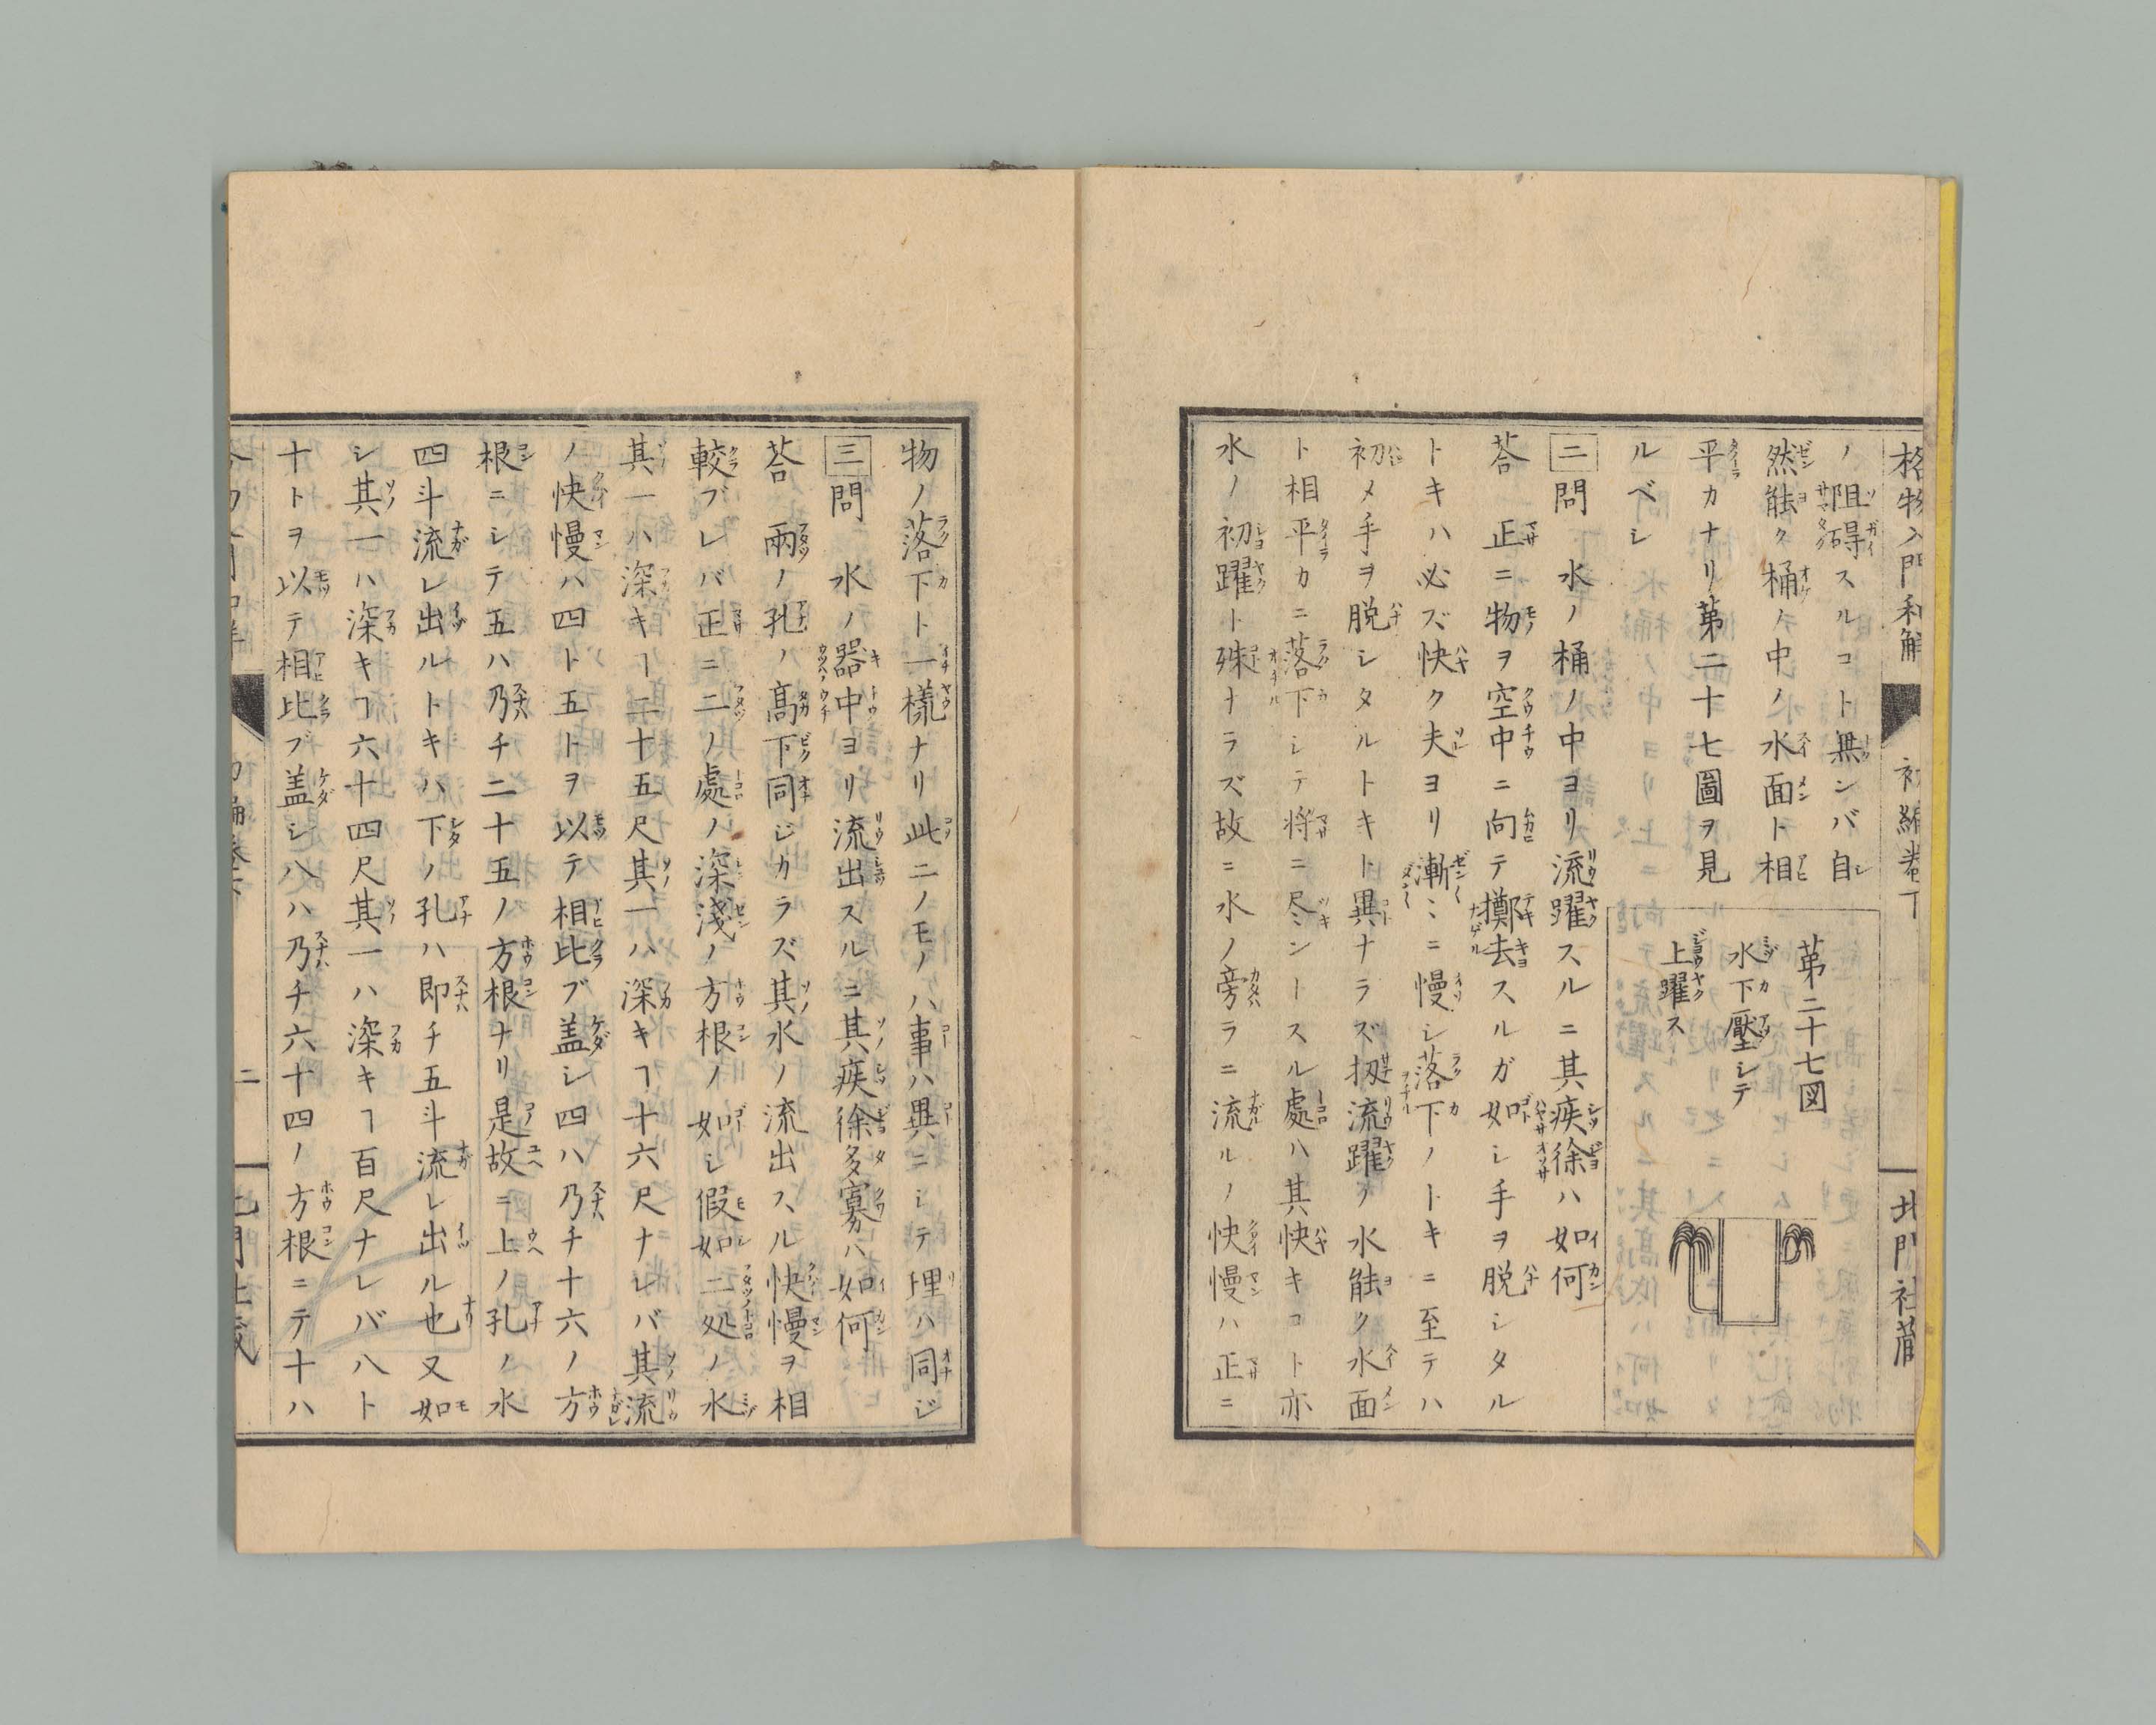 格物入門和解 初編巻下 北門社蔵
ノ阻碍スルコト無ンバ自
然能ク桶ノ中ノ水面ト相
平カナリ第二十七圖ヲ見
ルベシ
第二十七図
水下壓シテ
上躍ス
二問 水ノ桶ノ中ヨリ流躍スルニ其疾徐ハ如何
荅 正ニ物ヲ空中ニ向テ擲去スルガ如シ手ヲ脱シタル
トキハ必ズ快ク夫ヨリ漸〻ニ慢シ落下ノトキニ至テハ
初メ手ヲ脱シタルトキト異ナラズ扨流躍ノ水能ク水面
ト相平カニ落下シテ将ニ尽ンースル處ハ其快キコト亦
水ノ初躍ト殊ナラズ故ニ水ノ旁ラニ流ルノ快慢ハ正ニ
物ノ落下ト一樣ナリ此ニノモノハ事ハ異ニシテ理ハ同ジ
三問 水ノ器中ヨリ流出スルニ其疾徐多寡ハ如何
荅 兩ノ孔ノ高下同ジカラズ其水ノ流出スル快慢ヲ相
較ブレバ正ニ二ノ處ノ深淺ノ方根ノ如シ假如二処ノ水
其一ハ深キヿ二十五尺其一ハ深キヿ十六尺ナレバ其流
ノ快慢ハ四ト五トヲ以テ相比ブ盖シ四ハ乃チ十六ノ方
根ニシテ五ハ乃チ二十五ノ方根ナリ是故ニ上ノ孔ノ水
四斗流レ出ルトキハ下ノ孔ハ即チ五斗流レ出ル也又如
シ其一ハ深キヿ六十四尺其一ハ深キヿ百尺ナレバ八ト
十トヲ以テ相比ブ盖シ八ハ乃チ六十四ノ方根ニテ十ハ
二